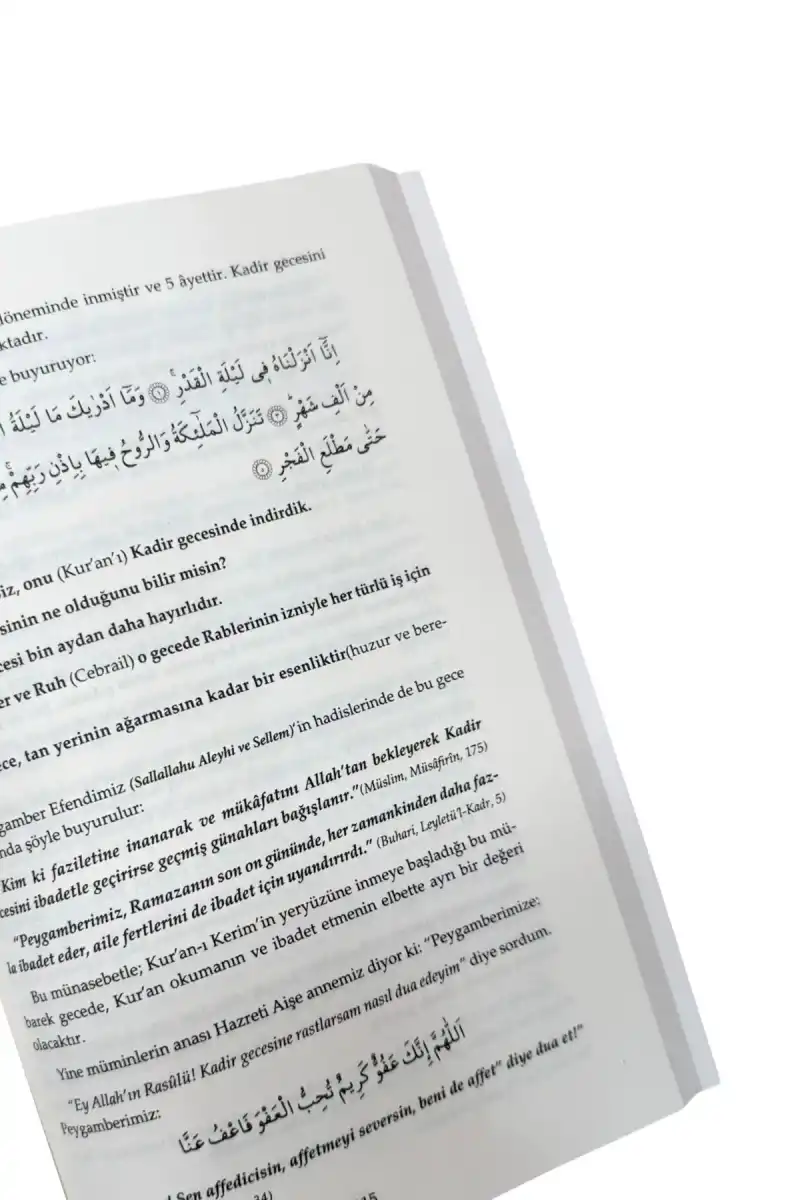 döneminde inmiştir ve 5 âyettir. Kadir gecesini
ktadır.
e buyuruyor:
اِنَّٓا اَنْزَلْنَاهُ ف۪ي لَيْلَةِ الْقَدْرِۚ ﴿١﴾ وَمَٓا اَدْرٰيكَ مَا لَيْلَةُ
مِنْ اَلْفِ شَهْرٍۜ ﴿٣﴾ تَنَزَّلُ الْمَلٰٓئِكَةُ وَالرُّوحُ ف۪يهَا بِاِذْنِ رَبِّهِمْۚ
حَتّٰى مَطْلَعِ الْفَجْرِ ﴿٥﴾
iz, onu (Kur'an'ı) Kadir gecesinde indirdik.
sinin ne olduğunu bilir misin?
cesi bin aydan daha hayırlıdır.
er ve Ruh (Cebrail) o gecede Rablerinin izniyle her türlü iş için
ce, tan yerinin ağarmasına kadar bir esenliktir(huzur ve bere-
gamber Efendimiz (Sallallahu Aleyhi ve Sellem)'in hadislerinde de bu gece
nda şöyle buyurulur:
Kim ki faziletine inanarak ve mükâfatını Allah'tan bekleyerek Kadir
cesini ibadetle geçirirse geçmiş günahları bağışlanır."(Müslim, Müsâfirîn, 175)
"Peygamberimiz, Ramazanın son on gününde, her zamankinden daha faz-
la ibadet eder, aile fertlerini de ibadet için uyandırırdı." (Buhari, Leyletü'l-Kadr, 5)
Bu münasebetle; Kur'an-ı Kerim'in yeryüzüne inmeye başladığı bu mü-
barek gecede, Kur'an okumanın ve ibadet etmenin elbette ayrı bir değeri
olacaktır.
Yine müminlerin anası Hazreti Aişe annemiz diyor ki: "Peygamberimize:
"Ey Allah'ın Rasûlü! Kadir gecesine rastlarsam nasıl dua edeyim" diye sordum.
Peygamberimiz:
اَللّٰهُمَّ اِنَّكَ عَفُوٌّ كَر۪يمٌ تُحِبُّ الْعَفْوَ فَاعْفُ عَنَّا
! Sen affedicisin, affetmeyi seversin, beni de affet" diye dua et!"
34)
15